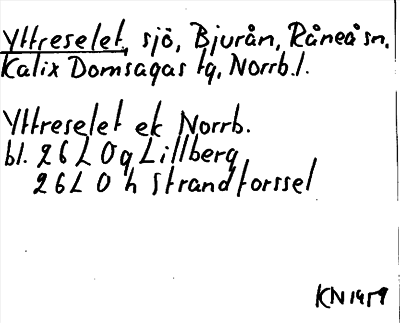 Yttreselet, sjö, Bjurån, Råneå sn,
Kalix Domsagas tg, Norrb.l.
Yttreselet ek Norrb.
bl. 26L0g Lillberg
26L0h Strandforssel
KN 1459